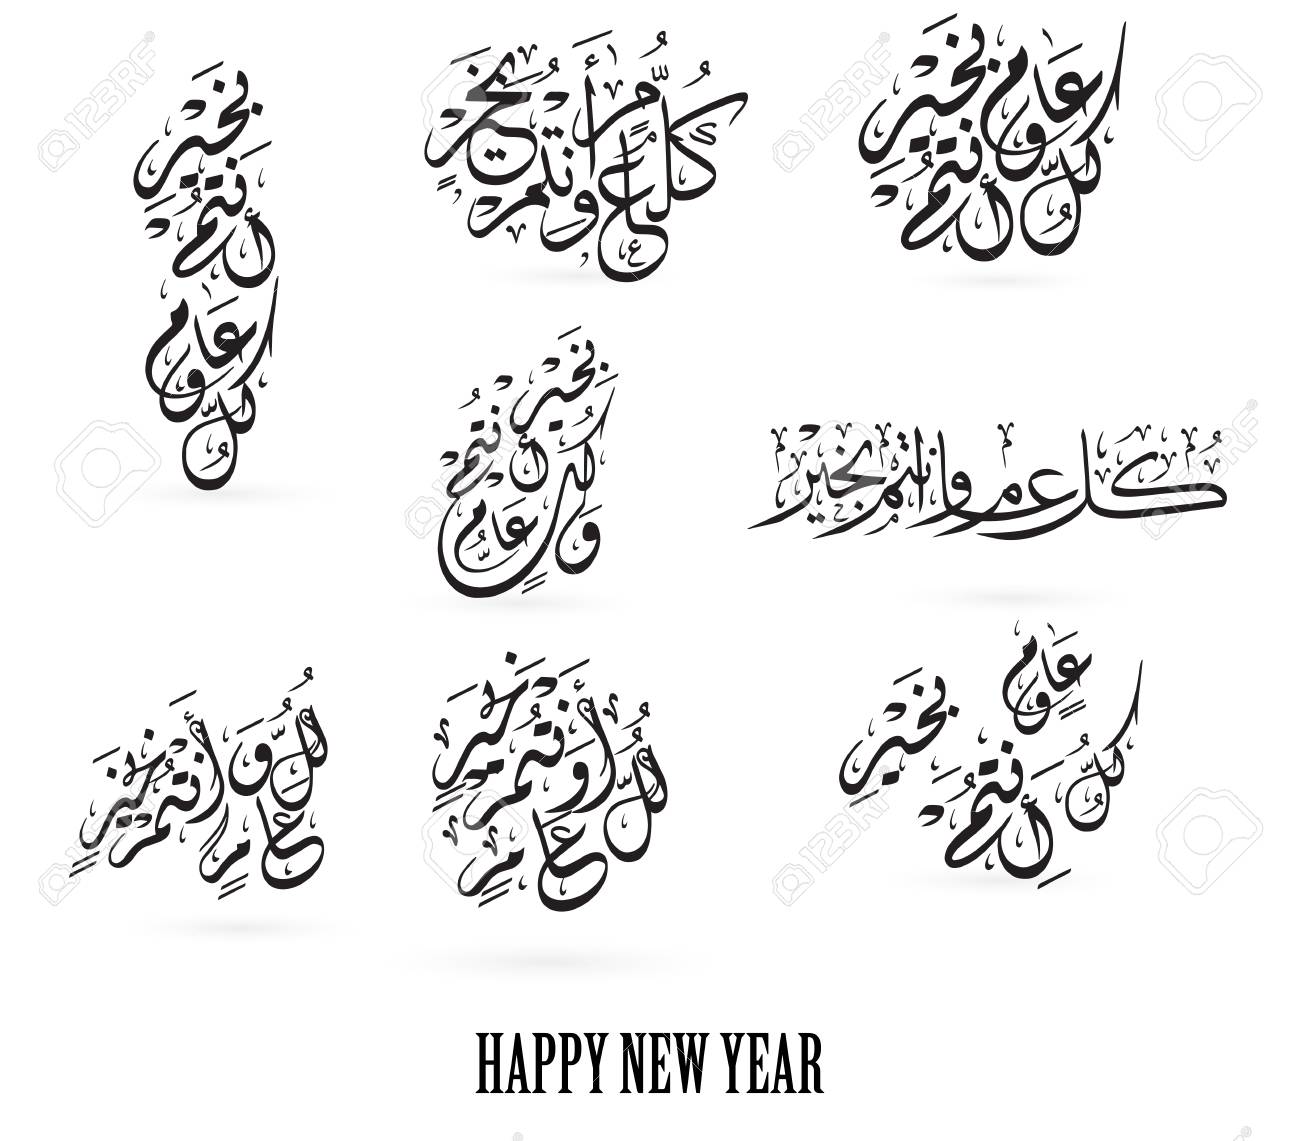 كل عام وأنتم بخير
كُلُّ عَامٍ وَأَنتُمْ بِخَيْرٍ
كُلُّ عَام وأَنتُمْ بِخَيْرٍ
كُلُّ عَامٍ وأَنتُمْ بِخَيْرٍ
كل عام وانتم بخير
كُلُّ عَامٍ وَأَنتُمْ بِخَيْرٍ
كُلُّ عَامٍ وَأَنتُمْ بِخَيْرٍ
كُلُّ عَامٍ وأَنتُمْ بِخَيْرٍ
HAPPY NEW YEAR
123RF